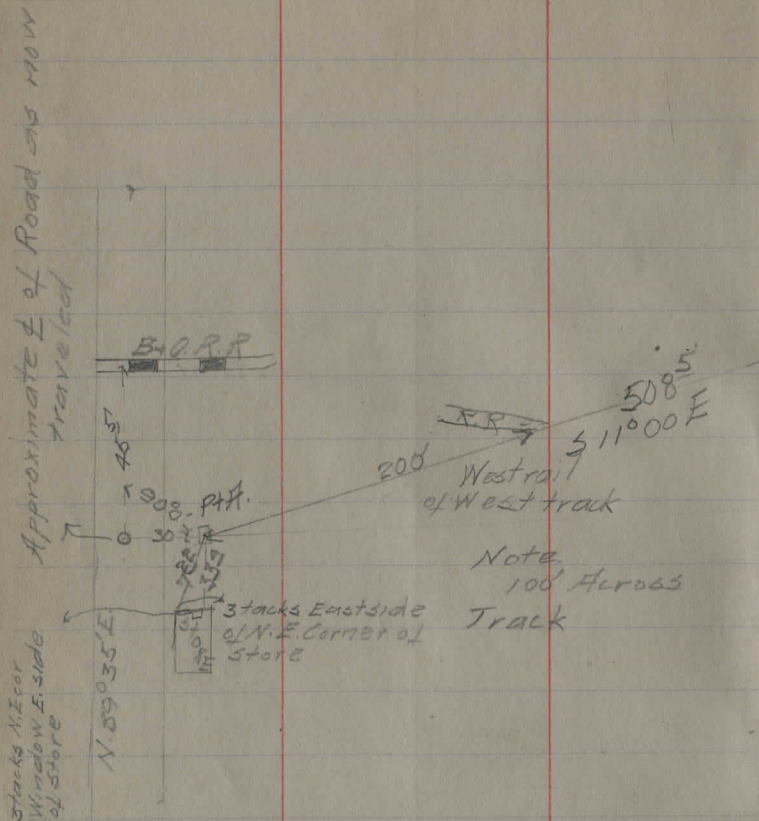 Approximate ⅊ of Road as now
traveled
B+O. R.R
45⁵
90°
30
pt A.
200'
R.R
508⁵
S 11°00 E
West rail
of West track
Note,
100' Across
Track
339
3 tacks Eastside
of N.E. Corner of
Store
N. 89°35' E
3 tacks N.E cor
Window E. side
of Store